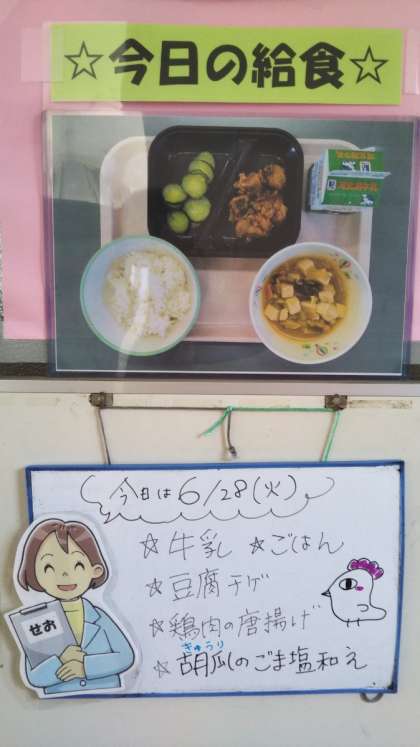 ☆今日の給食☆
今日は6/28(火)
☆牛乳 ☆ごはん
☆豆腐チゲ
☆鶏肉の唐揚げ
きゅうり
☆胡瓜のごま塩和え
せお